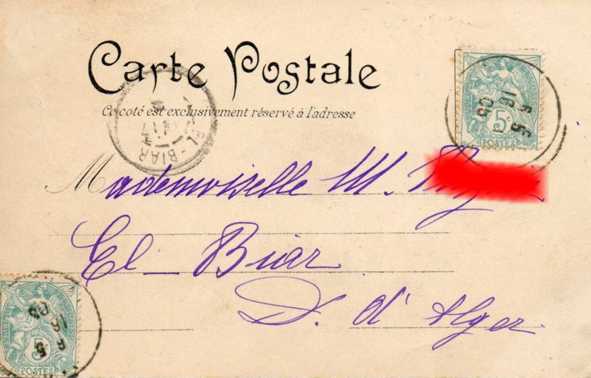 Carte Postale
Ce côté est exclusivement réservé à l'adresse
EL-BIAR
5c
POSTES
Mademoiselle M.
El-Biar
D. d'Alger
POSTES